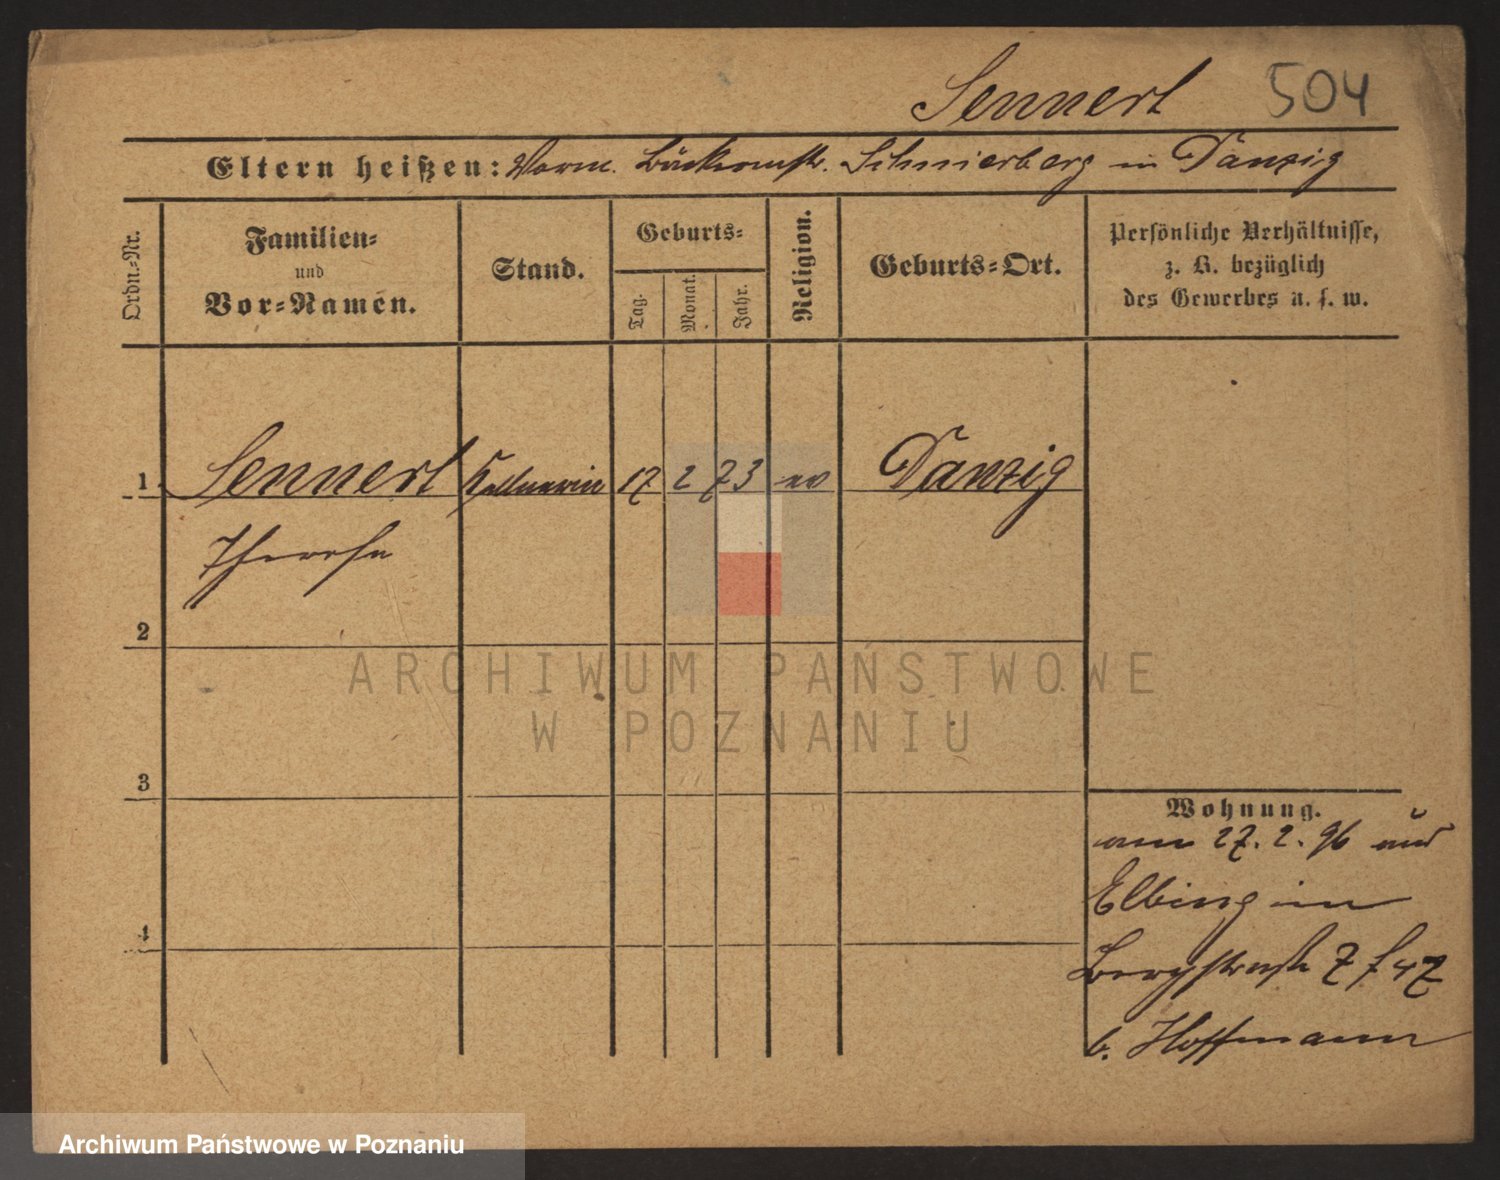 Sennert 504
Eltern heißen: Vorm. Bäckermstr. Schmierberg in Danzig
Ordn.-Nr.
Familien-
und
Vor-Namen.
Stand.
Geburts-
Tag.
Monat.
Jahr.
Religion.
Geburts-Ort.
Persönliche Verhältnisse,
z. B. bezüglich
des Gewerbes u. s. w.
1 Sennert Kellnerin 17 2 73 ev Danzig
Therese
2
3
4
Wohnung.
am 27. 2. 96 aus
Elbing in
Bergstraße 7
b. Hoffmann
ARCHIWUM PAŃSTWOWE
W POZNANIU
Archiwum Państwowe w Poznaniu